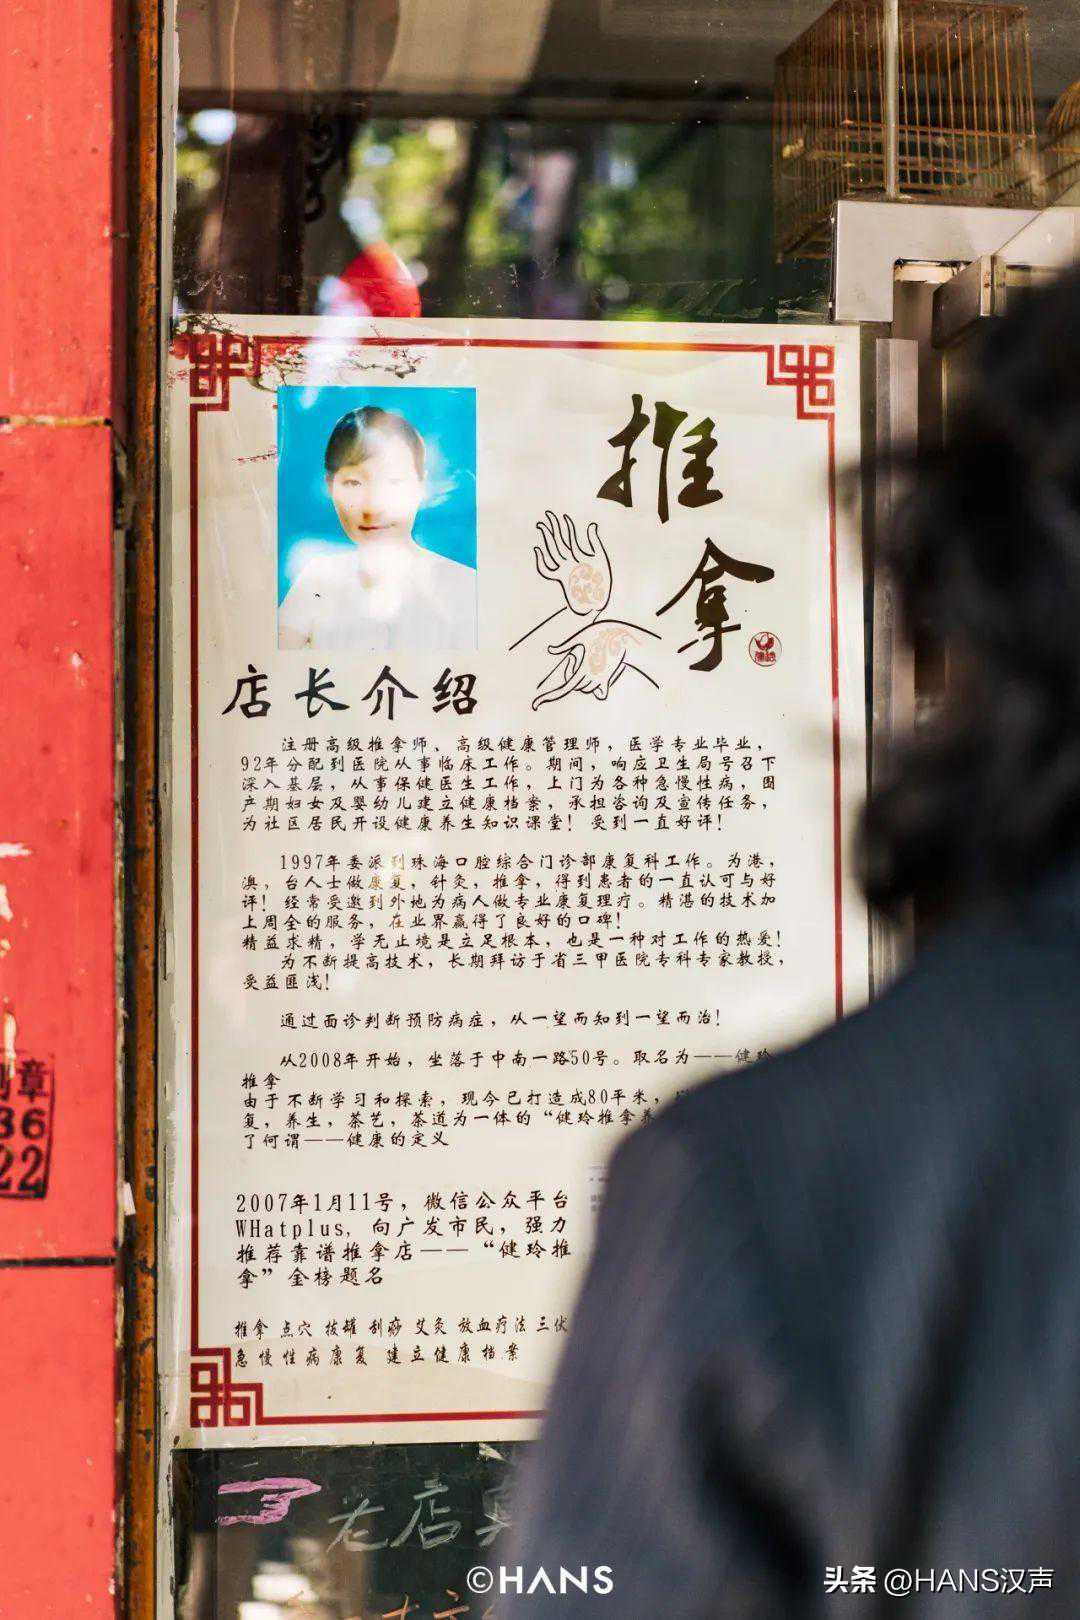 推
拿
店长介绍
注册高级推拿师、高级健康管理师，医学专业毕业，
92年分配到医院从事临床工作。期间，响应卫生局号召下
深入基层，从事保健医生工作，上门为各种急慢性病，围
产期妇女及婴幼儿建立健康档案，承担咨询及宣传任务，
为社区居民开设健康养生知识课堂！受到一直好评！
1997年委派到珠海口腔综合门诊部康复科工作。为港，
澳，台人士做康复，针灸，推拿，得到患者的一直认可与好
评！经常受邀到外地为病人做专业康复理疗。精湛的技术加
上周全的服务，在业界赢得了良好的口碑！
精益求精，学无止境是立足根本，也是一种对工作的热爱！
为不断提高技术，长期拜访于省三甲医院专科专家教授，
受益匪浅！
通过面诊判断预防病症，从一望而知到一望而治！
从2008年开始，坐落于中南一路50号。取名为——健玲
推拿
由于不断学习和探索，现今已打造成80平米，
复，养生，茶艺，茶道为一体的“健玲推拿养
了何谓——健康的定义
2007年1月11号，微信公众平台
WHatplus，向广发市民，强力
推荐靠谱推拿店——“健玲推
拿”金榜题名
推拿 点穴 拔罐 刮痧 艾灸 放血疗法 三伏
急慢性病康复 建立健康档案
章
36
22
老店
©HANS
头条 @HANS汉声